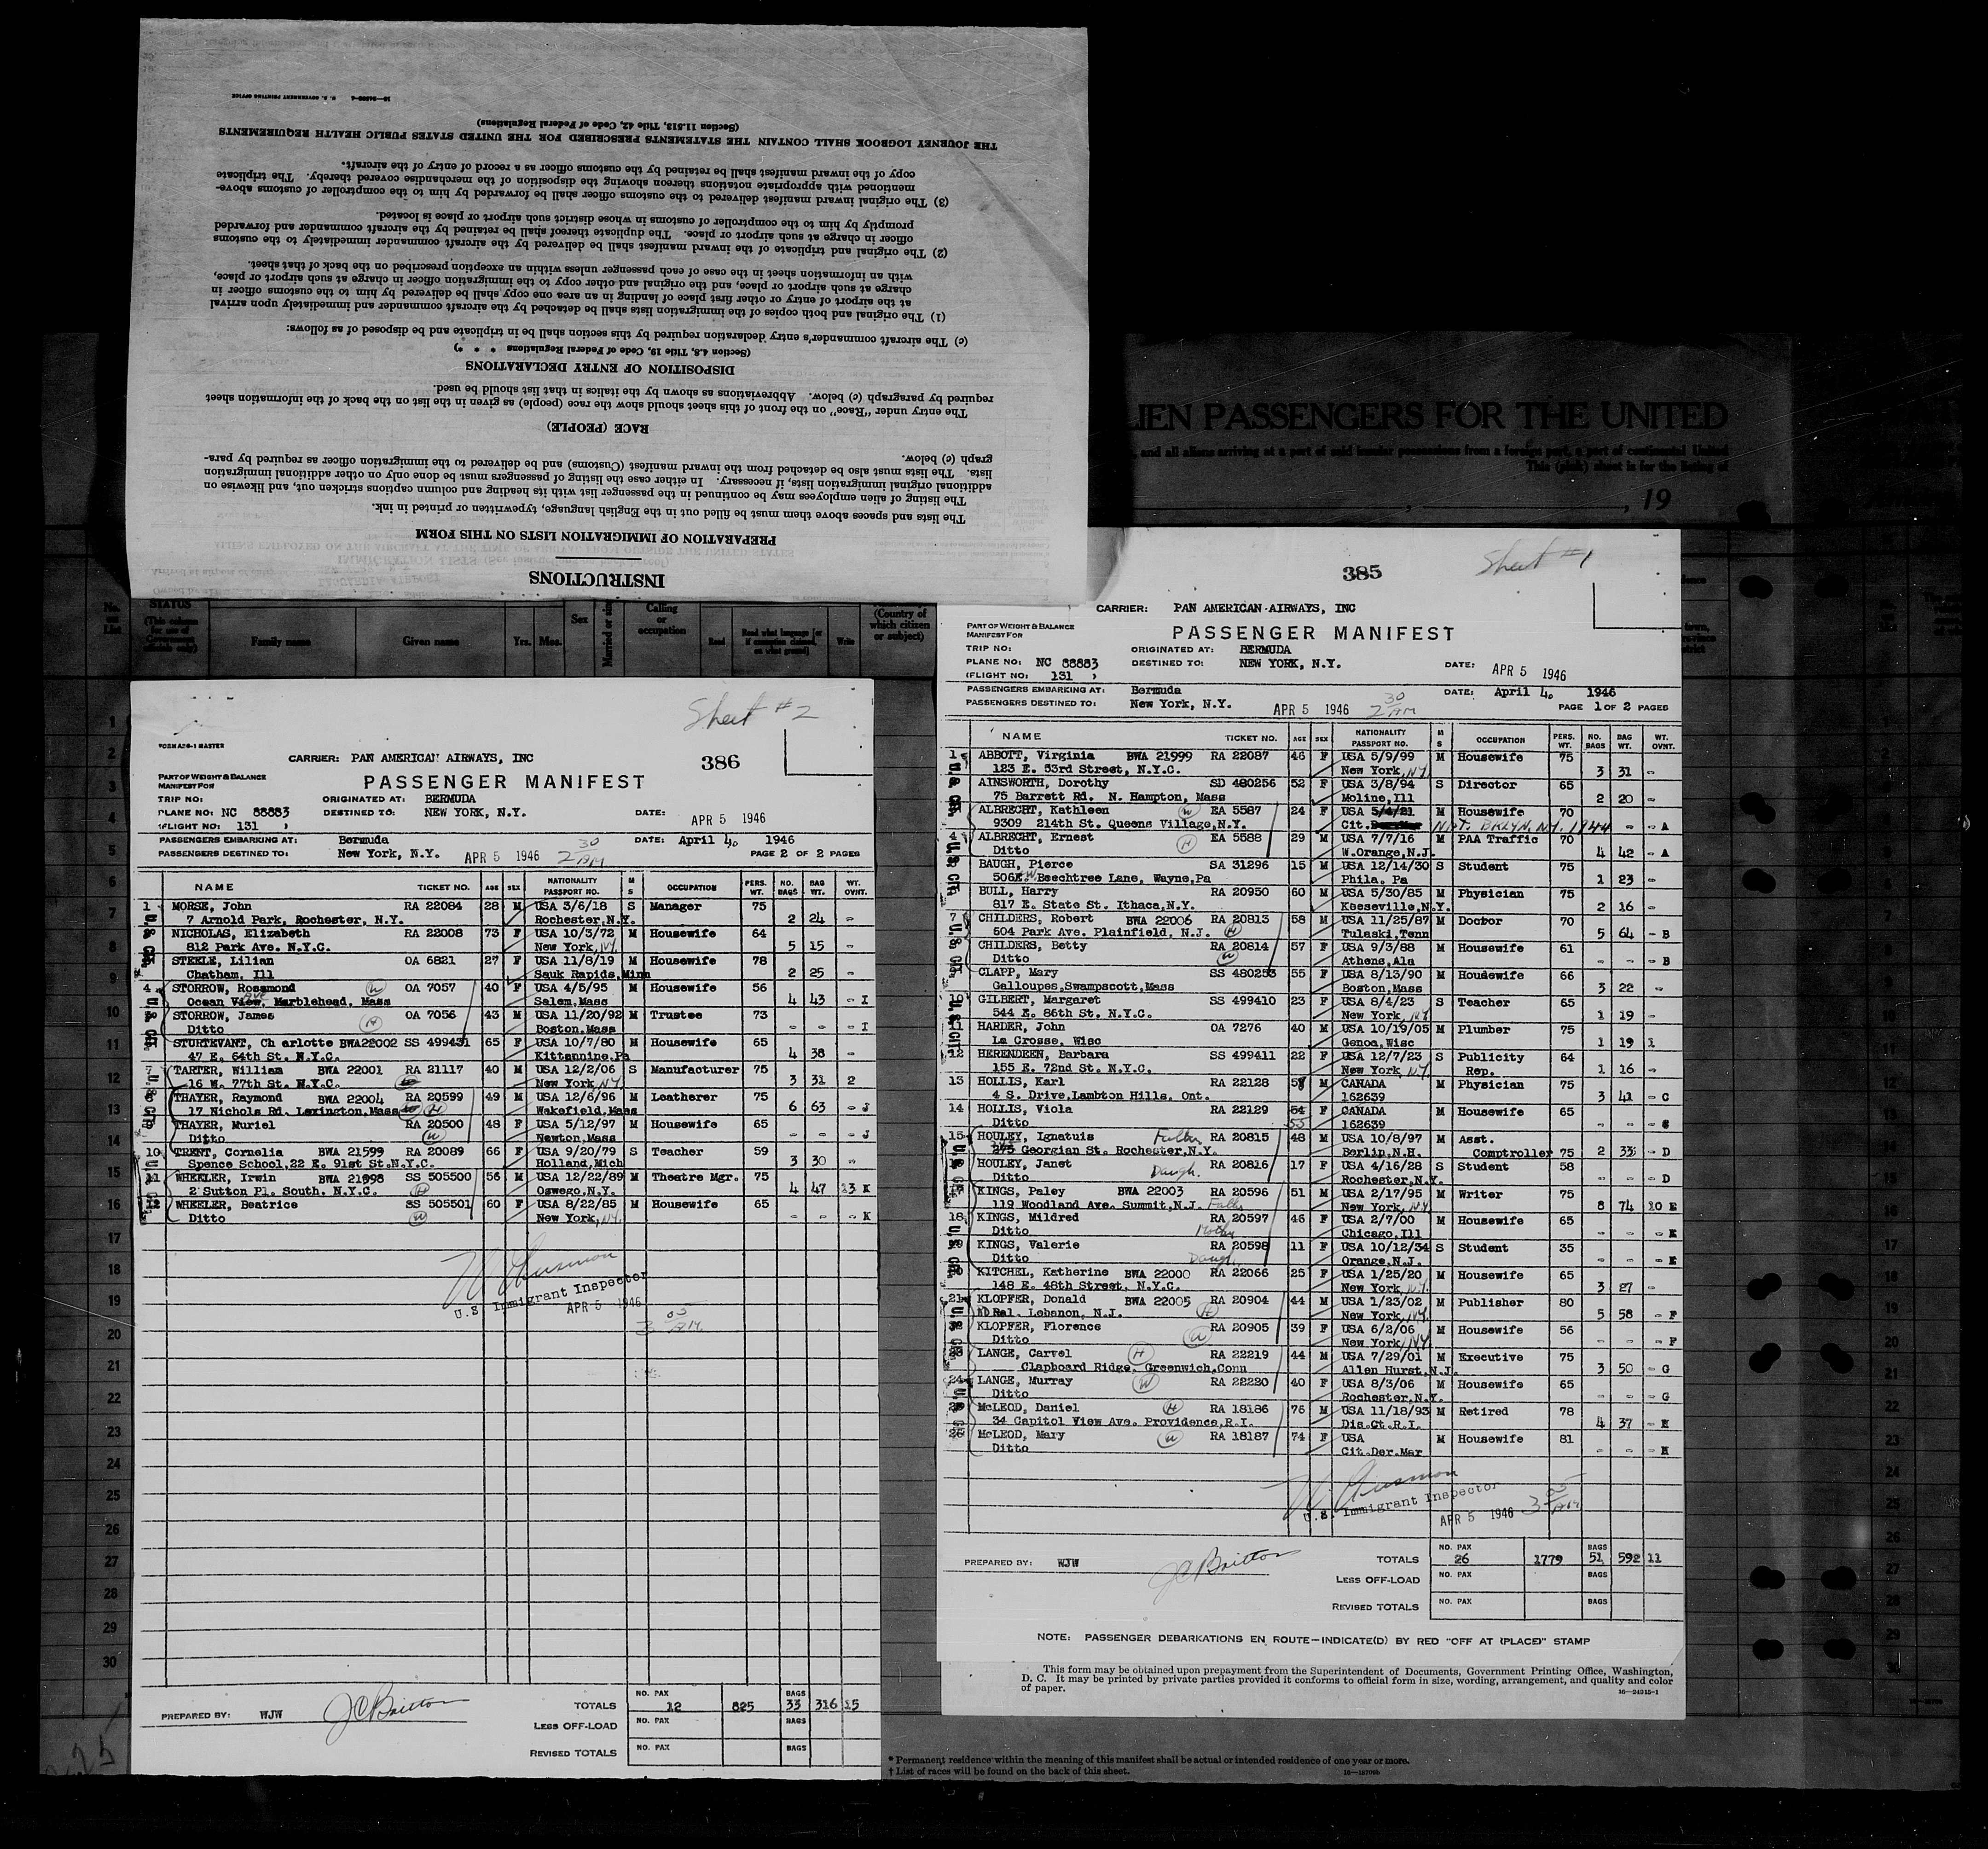 INSTRUCTIONS
PREPARATION OF IMMIGRATION LISTS ON THIS FORM
The lists and spaces above them must be filled out in the English language, typewritten or printed in ink.
The listing of alien employees may be continued in the passenger list with its heading and column captions stricken out, and likewise on
additional original immigration lists, if necessary. In either case the listing of passengers must be done only on other additional immigration
lists. The lists must also be detached from the inward manifest (Customs) and be delivered to the immigration officer as required by para-
graph (c) below.
RACE (PEOPLE)
The entry under "Race" on the front of this sheet should show the race (people) as given in the list on the back of the information sheet
required by paragraph (c) below. Abbreviations as shown by the italics in that list should be used.
DISPOSITION OF ENTRY DECLARATIONS
(Section 4.8, Title 19, Code of Federal Regulations * * *)
(c) The aircraft commander's entry declaration required by this section shall be in triplicate and be disposed of as follows:
(1) The original and both copies of the immigration lists shall be detached by the aircraft commander and immediately upon arrival
at the airport of entry or other first place of landing in an area one copy shall be delivered by him to the customs officer in
charge at such airport or place, and the original and other copy to the immigration officer in charge at such airport or place,
with an information sheet in the case of each passenger unless within an exception prescribed on the back of that sheet.
(2) The original and triplicate of the inward manifest shall be delivered by the aircraft commander immediately to the customs
officer in charge at such airport or place. The duplicate thereof shall be retained by the aircraft commander and forwarded
promptly by him to the comptroller of customs in whose district such airport or place is located.
(3) The original inward manifest delivered to the customs officer shall be forwarded by him to the comptroller of customs above-
mentioned with appropriate notations thereon showing the disposition of the merchandise covered thereby. The triplicate
copy of the inward manifest shall be retained by the customs officer as a record of entry of the aircraft.
THE JOURNEY LOGBOOK SHALL CONTAIN THE STATEMENTS PRESCRIBED FOR THE UNITED STATES PUBLIC HEALTH REQUIREMENTS
(Section 11.513, Title 42, Code of Federal Regulations)
U. S. GOVERNMENT PRINTING OFFICE
LIEN PASSENGERS FOR THE UNITED
, and all aliens arriving at a port of said insular possessions from a foreign port, a port of continental United
This (pink) sheet is for the listing of
, 19
No. on List
STATUS
Family name Given name Yrs. Mos. Sex
Calling or occupation
Read
Write
(Country of which citizen or subject)
Sheet #2
386
CARRIER: PAN AMERICAN AIRWAYS, INC
PART OF WEIGHT & BALANCE
MANIFEST FOR
PASSENGER MANIFEST
TRIP NO: ORIGINATED AT: BERMUDA
PLANE NO: NC 88883 DESTINED TO: NEW YORK, N.Y. DATE: APR 5 1946
FLIGHT NO: 131
PASSENGERS EMBARKING AT: Bermuda DATE: April 4, 1946
PASSENGERS DESTINED TO: New York, N.Y. APR 5 1946 2 30 AM PAGE 2 OF 2 PAGES
NAME TICKET NO. AGE SEX NATIONALITY PASSPORT NO. M S OCCUPATION PERS. WT. NO. BAGS BAG WT. WT. OVNT.
1 MORSE, John RA 22084 28 M USA 3/6/18 S Manager 75
7 Arnold Park, Rochester, N.Y. Rochester,N.Y. 2 24 -
NICHOLAS, Elizabeth RA 22008 73 F USA 10/3/72 M Housewife 64
812 Park Ave. N.Y.C. New York, NY 5 15 -
STEELE, Lilian OA 6821 27 F USA 11/8/19 M Housewife 78
Chatham, Ill Sauk Rapids,Minn 2 25 -
4 STORROW, Rosamond W OA 7057 40 F USA 4/5/95 M Housewife 56
Ocean View, Ave Marblehead, Mass Salem,Mass 4 43 - I
STORROW, James OA 7056 43 M USA 11/20/92 M Trustee 73
Ditto H Boston,Mass - - - I
STURTEVANT, Ch arlotte BWA22002 SS 499431 65 F USA 10/7/80 M Housewife 65
47 E. 64th St. N.Y.C. Kittannine,Pa 4 38 -
TARTER, William BWA 22001 RA 21117 40 M USA 12/2/06 S Manufacturer 75
16 W. 77th St. N.Y.C. New York, NY 3 31 2
THAYER, Raymond BWA 22004 RA 20599 49 M USA 12/6/96 M Leatherer 75
17 Nichols Rd. Lexington,Mass H Wakefield,Mass 6 63 - J
THAYER, Muriel RA 20500 48 F USA 5/12/97 M Housewife 65
Ditto W Newton,Mass - - - J
10 TRENT, Cornelia BWA 21599 RA 20089 66 F USA 9/20/79 S Teacher 59
Spence School,22 E. 91st St.N.Y.C. Holland,Mich 3 30 -
11 WHEELER, Irwin BWA 21998 SS 505500 56 M USA 12/22/89 M Theatre Mgr. 75
2 Sutton Pl. South, N.Y.C. H Oswego,N.Y. 4 47 13 K
WHEELER, Beatrice SS 505501 60 F USA 8/22/85 M Housewife 65
Ditto W New York, NY - - - K
U.S Immigrant Inspector
APR 5 1946
3 05 AM
PREPARED BY: WJW JC Britton
TOTALS NO. PAX 12 825 BAGS 33 316 15
LESS OFF-LOAD NO. PAX BAGS
REVISED TOTALS NO. PAX BAGS
Sheet #1
385
CARRIER: PAN AMERICAN AIRWAYS, INC
PART OF WEIGHT & BALANCE
MANIFEST FOR
PASSENGER MANIFEST
TRIP NO: ORIGINATED AT: BERMUDA
PLANE NO: NC 88883 DESTINED TO: NEW YORK, N.Y. DATE: APR 5 1946
FLIGHT NO: 131
PASSENGERS EMBARKING AT: Bermuda DATE: April 4, 1946
PASSENGERS DESTINED TO: New York, N.Y. APR 5 1946 2 30 AM PAGE 1 OF 2 PAGES
NAME TICKET NO. AGE SEX NATIONALITY PASSPORT NO. M S OCCUPATION PERS. WT. NO. BAGS BAG WT. WT. OVNT.
1 ABBOTT, Virginia BWA 21999 RA 22087 46 F USA 5/9/99 M Housewife 75
123 E. 53rd Street, N.Y.C. New York, NY 3 31 -
AINSWORTH, Dorothy SD 480256 52 F USA 3/8/94 S Director 65
75 Barrett Rd. N. Hampton, Mass Moline,Ill 2 20 -
ALBRECHT, Kathleen W EA 5587 24 F USA 5/4/21 M Housewife 70
9309 214th St. Queens Village,N.Y. Cit. NAT. BKLYN, N.Y. 1944 - - A
4 ALBRECHT, Ernest EA 5588 29 M USA 7/7/16 M PAA Traffic 70
Ditto H W.Orange,N.J. 4 42 - A
BAUGH, Pierce SA 31296 15 M USA 12/14/30 S Student 75
506 W Beechtree Lane, Wayne,Pa Phila. Pa 1 23 -
BULL, Harry RA 20950 60 M USA 5/30/85 M Physician 75
817 E. State St. Ithaca,N.Y. Keeseville,N.Y. 2 16 -
7 CHILDERS, Robert BWA 22006 RA 20813 58 M USA 11/25/87 M Doctor 70
604 Park Ave. Plainfield, N.J. H Tulaski,Tenn 5 64 - B
CHILDERS, Betty RA 20814 57 F USA 9/3/88 M Housewife 61
Ditto W Athens,Ala - B
CLAPP, Mary SS 480253 55 F USA 8/13/90 M Housewife 66
Galloupes,Swampscott,Mass Boston,Mass 3 22 -
10 GILBERT, Margaret SS 499410 23 F USA 8/4/23 S Teacher 65
544 E. 86th St. N.Y.C. New York, NY 1 19 -
11 HARDER, John OA 7276 40 M USA 10/19/05 M Plumber 75
La Crosse, Wisc Genoa,Wisc 1 19 1
12 HERENDEEN, Barbara SS 499411 22 F USA 12/7/23 S Publicity 64
155 E. 72nd St. N.Y.C. New York NY Rep. 1 16 -
13 HOLLIS, Karl RA 22128 M CANADA M Physician 75
4 S. Drive,Lambton Hills, Ont. 162639 3 41 - C
14 HOLLIS, Viola RA 22129 54 F CANADA M Housewife 65
Ditto 55 162639 - - - C
15 HOULEY, Ignatuis Father RA 20815 48 M USA 10/8/97 M Asst.
275 Georgian St. Rochester,N.Y. Berlin,N.H. Comptroller 75 2 33 - D
HOULEY, Janet RA 20816 17 F USA 4/16/28 S Student 58
Ditto Daugh. Rochester,N.Y. - - - D
KINGS, Paley BWA 22003 RA 20596 51 M USA 2/17/95 M Writer 75
119 Woodland Ave. Summit,N.J. Father New York, NY 8 74 10 E
18 KINGS, Mildred RA 20597 46 F USA 2/7/00 M Housewife 65
Ditto Mother Chicago,Ill - - - E
KINGS, Valerie RA 20598 11 F USA 10/12/34 S Student 35
Ditto Daugh. Orange,N.J. - - - E
KITCHEL, Katherine BWA 22000 RA 22066 25 F USA 1/25/20 M Housewife 65
148 E. 48th Street, N.Y.C. New York, NY. 3 27 -
21 KLOPFER, Donald BWA 22005 RA 20904 44 M USA 1/23/02 M Publisher 80
Ral. Lebanon, N.J. H New York, NY. 5 58 - F
KLOPFER, Florence RA 20905 39 F USA 6/2/06 M Housewife 56
Ditto W New York, NY - - - F
23 LANGE, Carvel H RA 22219 44 M USA 7/29/01 M Executive 75
Clapboard Ridge, Greenwich,Conn Allen Hurst,N.J. 3 50 - G
24 LANGE, Murray W RA 22220 40 F USA 8/3/06 M Housewife 65
Ditto Rochester,N.Y. - - - G
McLEOD, Daniel H RA 18186 76 M USA 11/18/93 M Retired 78
34 Capitol View Ave. Providence,R.I. Dis.Ct.R.I. 4 37 - H
26 McLEOD, Mary W RA 18187 74 F USA M Housewife 81
Ditto Cit.Der.Mar - - - H
U.S. Immigrant Inspector
APR 5 1946 3 05 AM
PREPARED BY: WJW JC Britton
TOTALS NO. PAX 26 1779 BAGS 51 592 11
LESS OFF-LOAD NO. PAX BAGS
REVISED TOTALS NO. PAX BAGS
NOTE: PASSENGER DEBARKATIONS EN ROUTE—INDICATE(D) BY RED "OFF AT (PLACE)" STAMP
This form may be obtained upon prepayment from the Superintendent of Documents, Government Printing Office, Washington,
D. C. It may be printed by private parties provided it conforms to official form in size, wording, arrangement, and quality and color
of paper.
* Permanent residence within the meaning of this manifest shall be actual or intended residence of one year or more.
† List of races will be found on the back of this sheet.